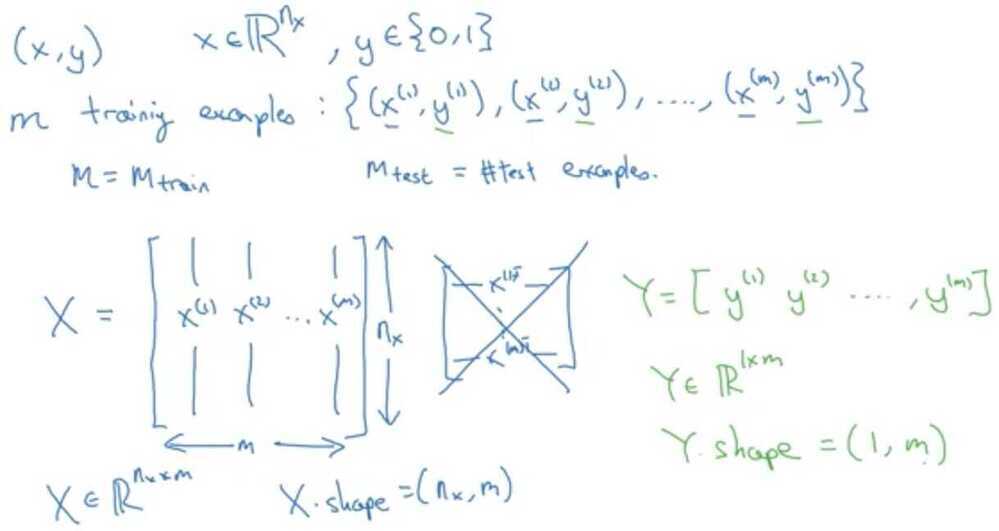 (x,y) x∈ℝ^{n_x}, y∈{0,1}
m training examples : {(x^{(1)}, y^{(1)}), (x^{(2)}, y^{(2)}), ...., (x^{(m)}, y^{(m)})}
M = M_{train} M_{test} = #test examples.
X = [x^{(1)} x^{(2)} ... x^{(m)}] n_x
m
x^{(1)T}
x^{(m)T}
Y = [y^{(1)} y^{(2)} ...., y^{(m)}]
Y∈ℝ^{1×m}
Y.shape = (1, m)
X∈ℝ^{n_x×m} X.shape = (n_x, m)